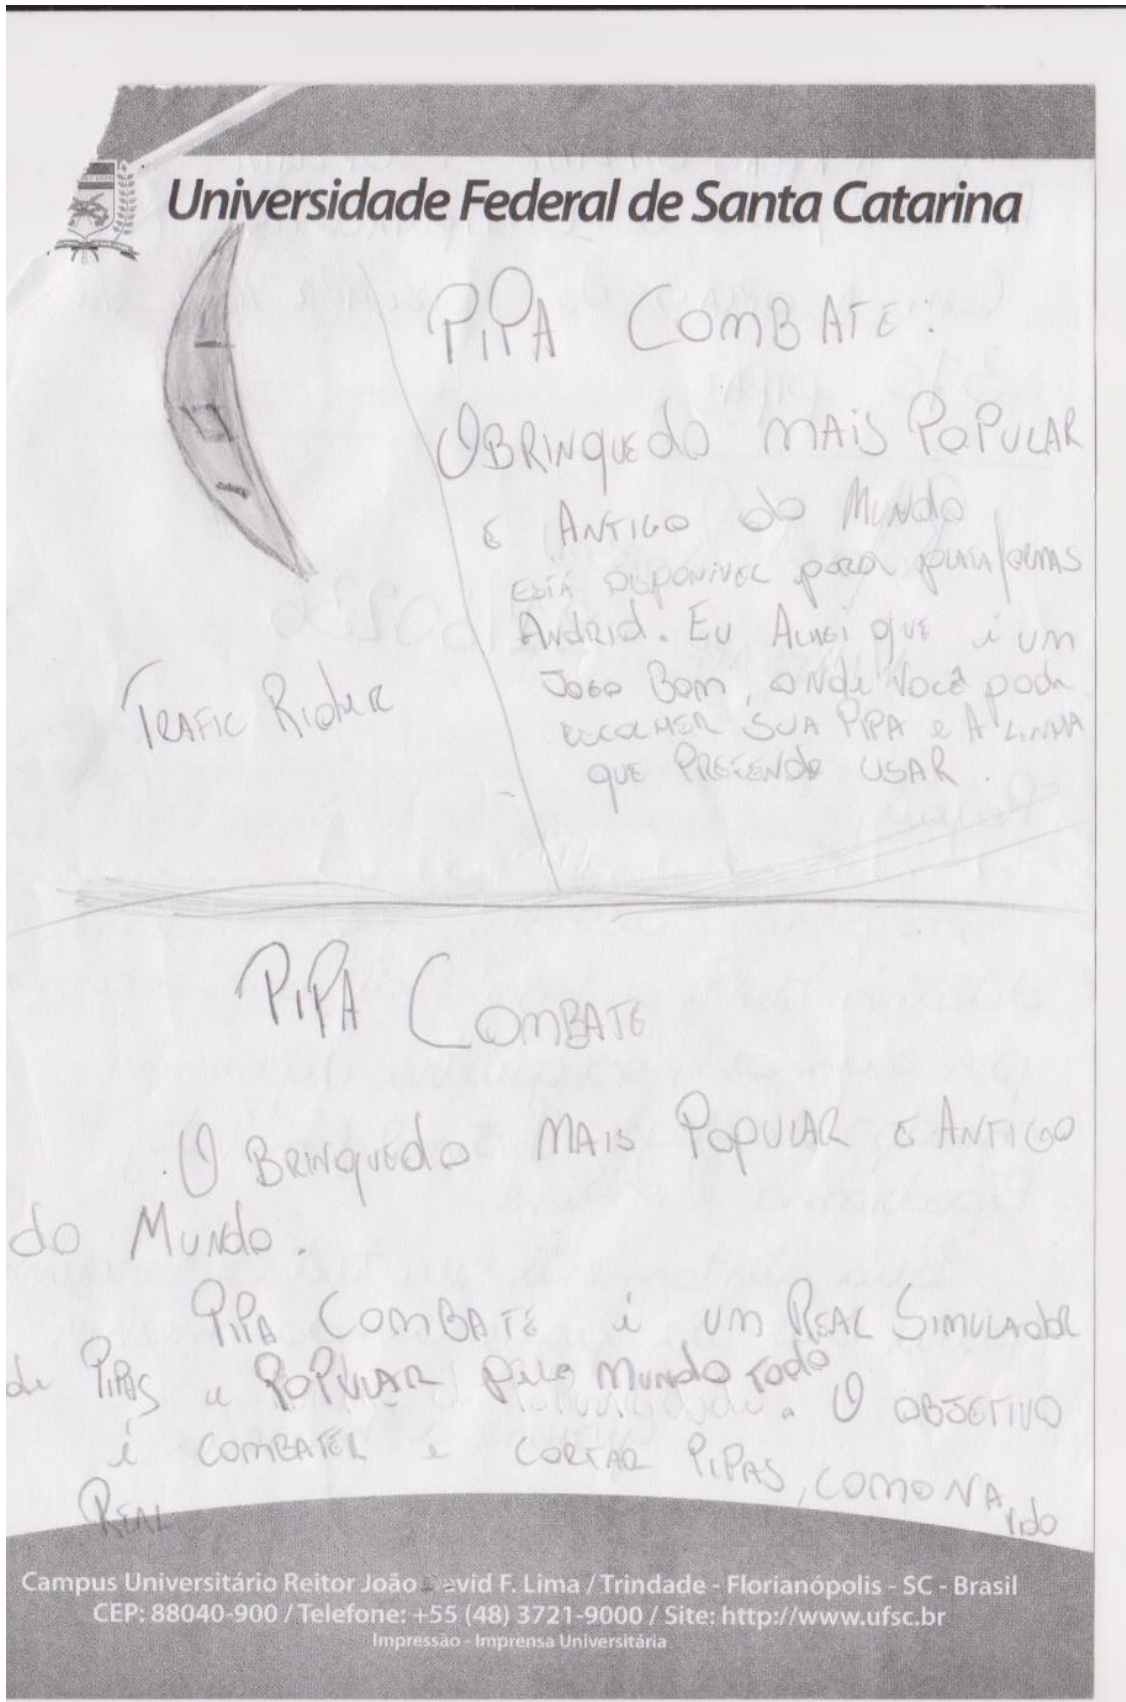 Universidade Federal de Santa Catarina
PIPA COMBATE:
O BRINQUEdo MAIS POPULAR
E ANTIGO do MUNdo
ESTÁ DISPONIVEL para plataformas
ANdRId. EU ACHEI QUE é UM
JOGO BOM, ONde Você pode
ESCOLHER SUA PIPA e A LINHA
QUE PRETENDE USAR.
TRAFIC RIdER
PIPA COMBATE
O BRINQUEdo MAIS POPULAR E ANTIGO
do MUNdo.
PIPA COMBATE é UM REAL SIMULAdOR
de PIPAS e POPULAR pelo MUNdo TOdo. O OBJETIVO
é COMBATER e CORTAR PIPAS, COMO NA vido
REAL
Campus Universitário Reitor João David F. Lima / Trindade - Florianópolis - SC - Brasil
CEP: 88040-900 / Telefone: +55 (48) 3721-9000 / Site: http://www.ufsc.br
Impressão - Imprensa Universitária